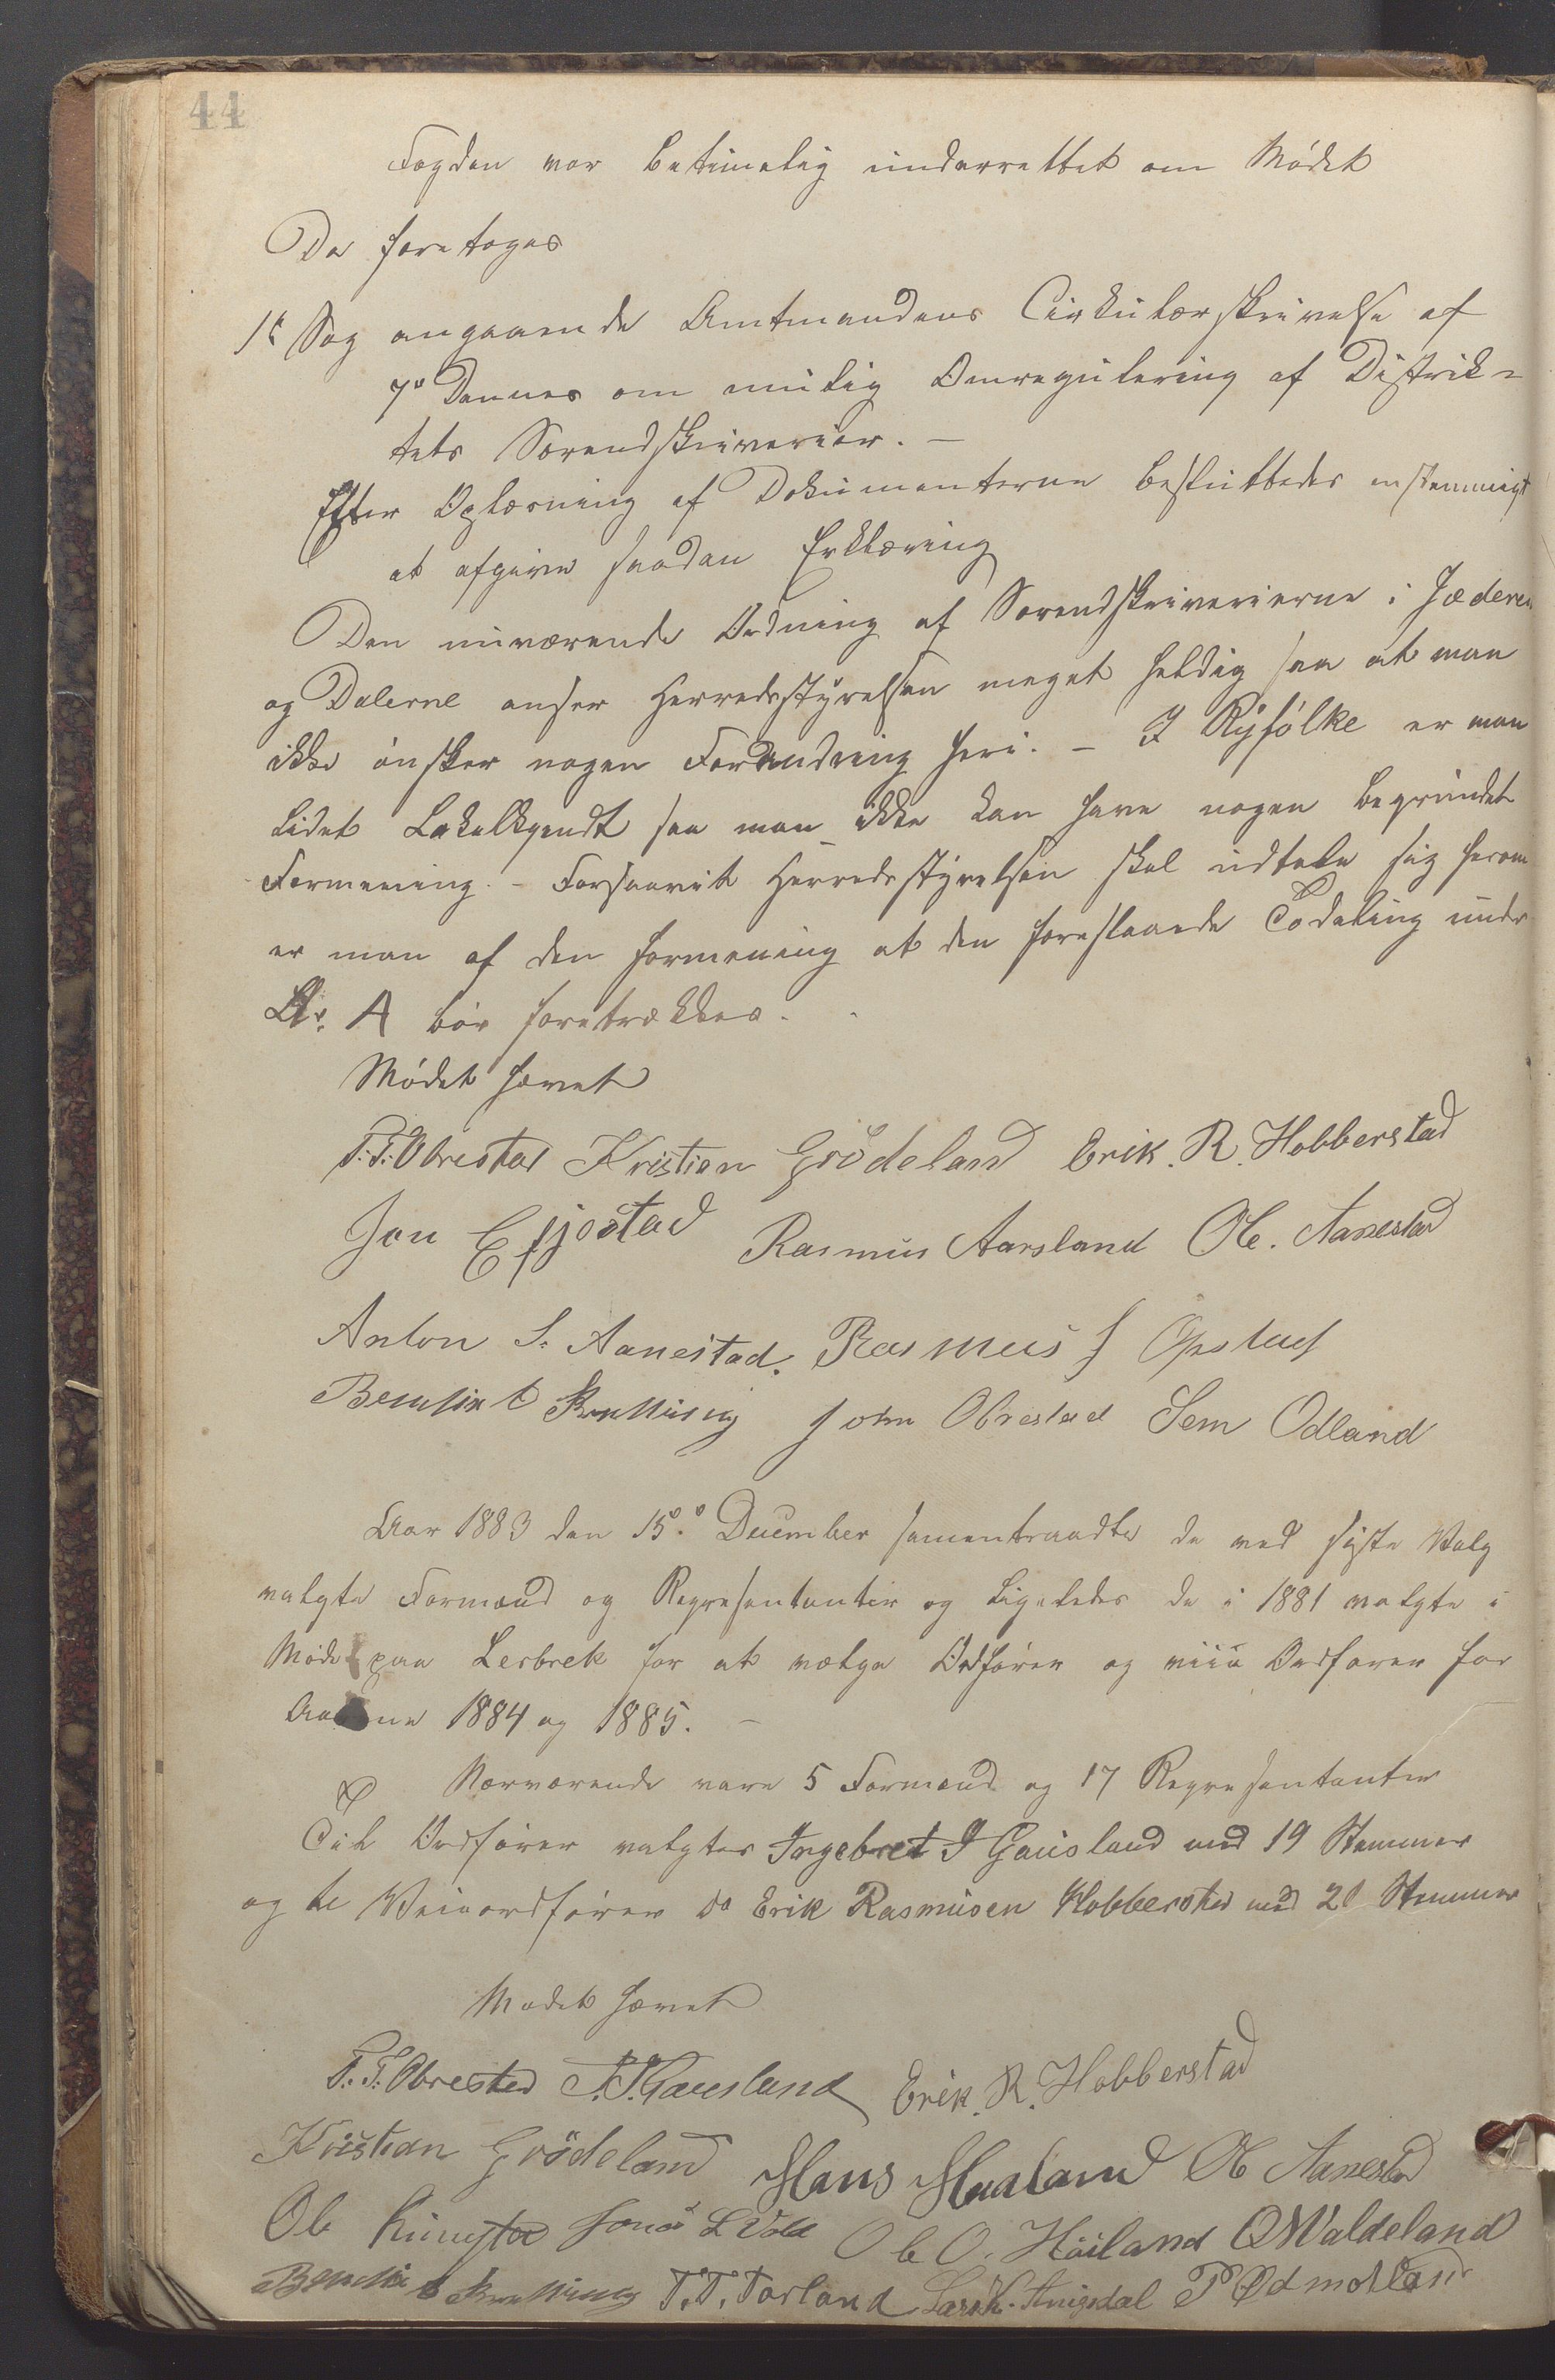 44
Fogden var betimelig underrettet om Mødet
Da foretoges
1t Sag angaaende Amtmandens Cirkulærskrivelse af
7de Dennes om mulig Omregulering af Distrik-
tets Sorendskriverier. -
Efter Oplæsning af Dokumenterne besluttedes enstemmigt
at afgive saadan Erklæring
Den nuværende Ordning af Sorendskriverierne i Jæderen
og Dalerne anser Herredsstyrelsen meget heldig saa at man
ikke ønsker nogen Forandring heri. - I Ryfylke er man
lidet Lokalkjendt saa man ikke kan have nogen begrundet
Formening. - Forsaavit Herredsstyrelsen skal udtale sig herom
er man af den formening at den foreslaaede Todeling under
Ltr. A bør foretrækkes.
Mødet hævet
T. T. Obrestad Kristian Grödeland Erik. R. Hobberstad
Jon Efjestad Rasmus Aarsland Ole. Aanestad
Anton S. Aanestad. Rasmus J Opstad
Bendix John Obrestad Sem Odland
Aar 1883 den 15de December samentraadte de ved siste Valg
valgte Formænd og Repræsentanter og ligeledes de i 1881 valgte i
Møde paa Lerbrek for at vælge Ordfører og vise Ordfører for
Aarene 1884 og 1885. -
Nærværende vare 5 Formænd og 17 Repræsentanter
Til Ordfører valgtes Ingebret I Gausland med 19 Stemmer
og te Viseordfører do Erik Rasmusen Hobberstad med 20 Stemmer
Mødet hævet
T. T. Obrestad I. I. Gausland Erik. R. Hobberstad
Kristian Grödeland Hans Hualand Ole Aanestad
Ole Jonas L Vold Ole O. Høiland O Waldeland
Bendix T. T. Torland Lars Amisdal P Ødmotland